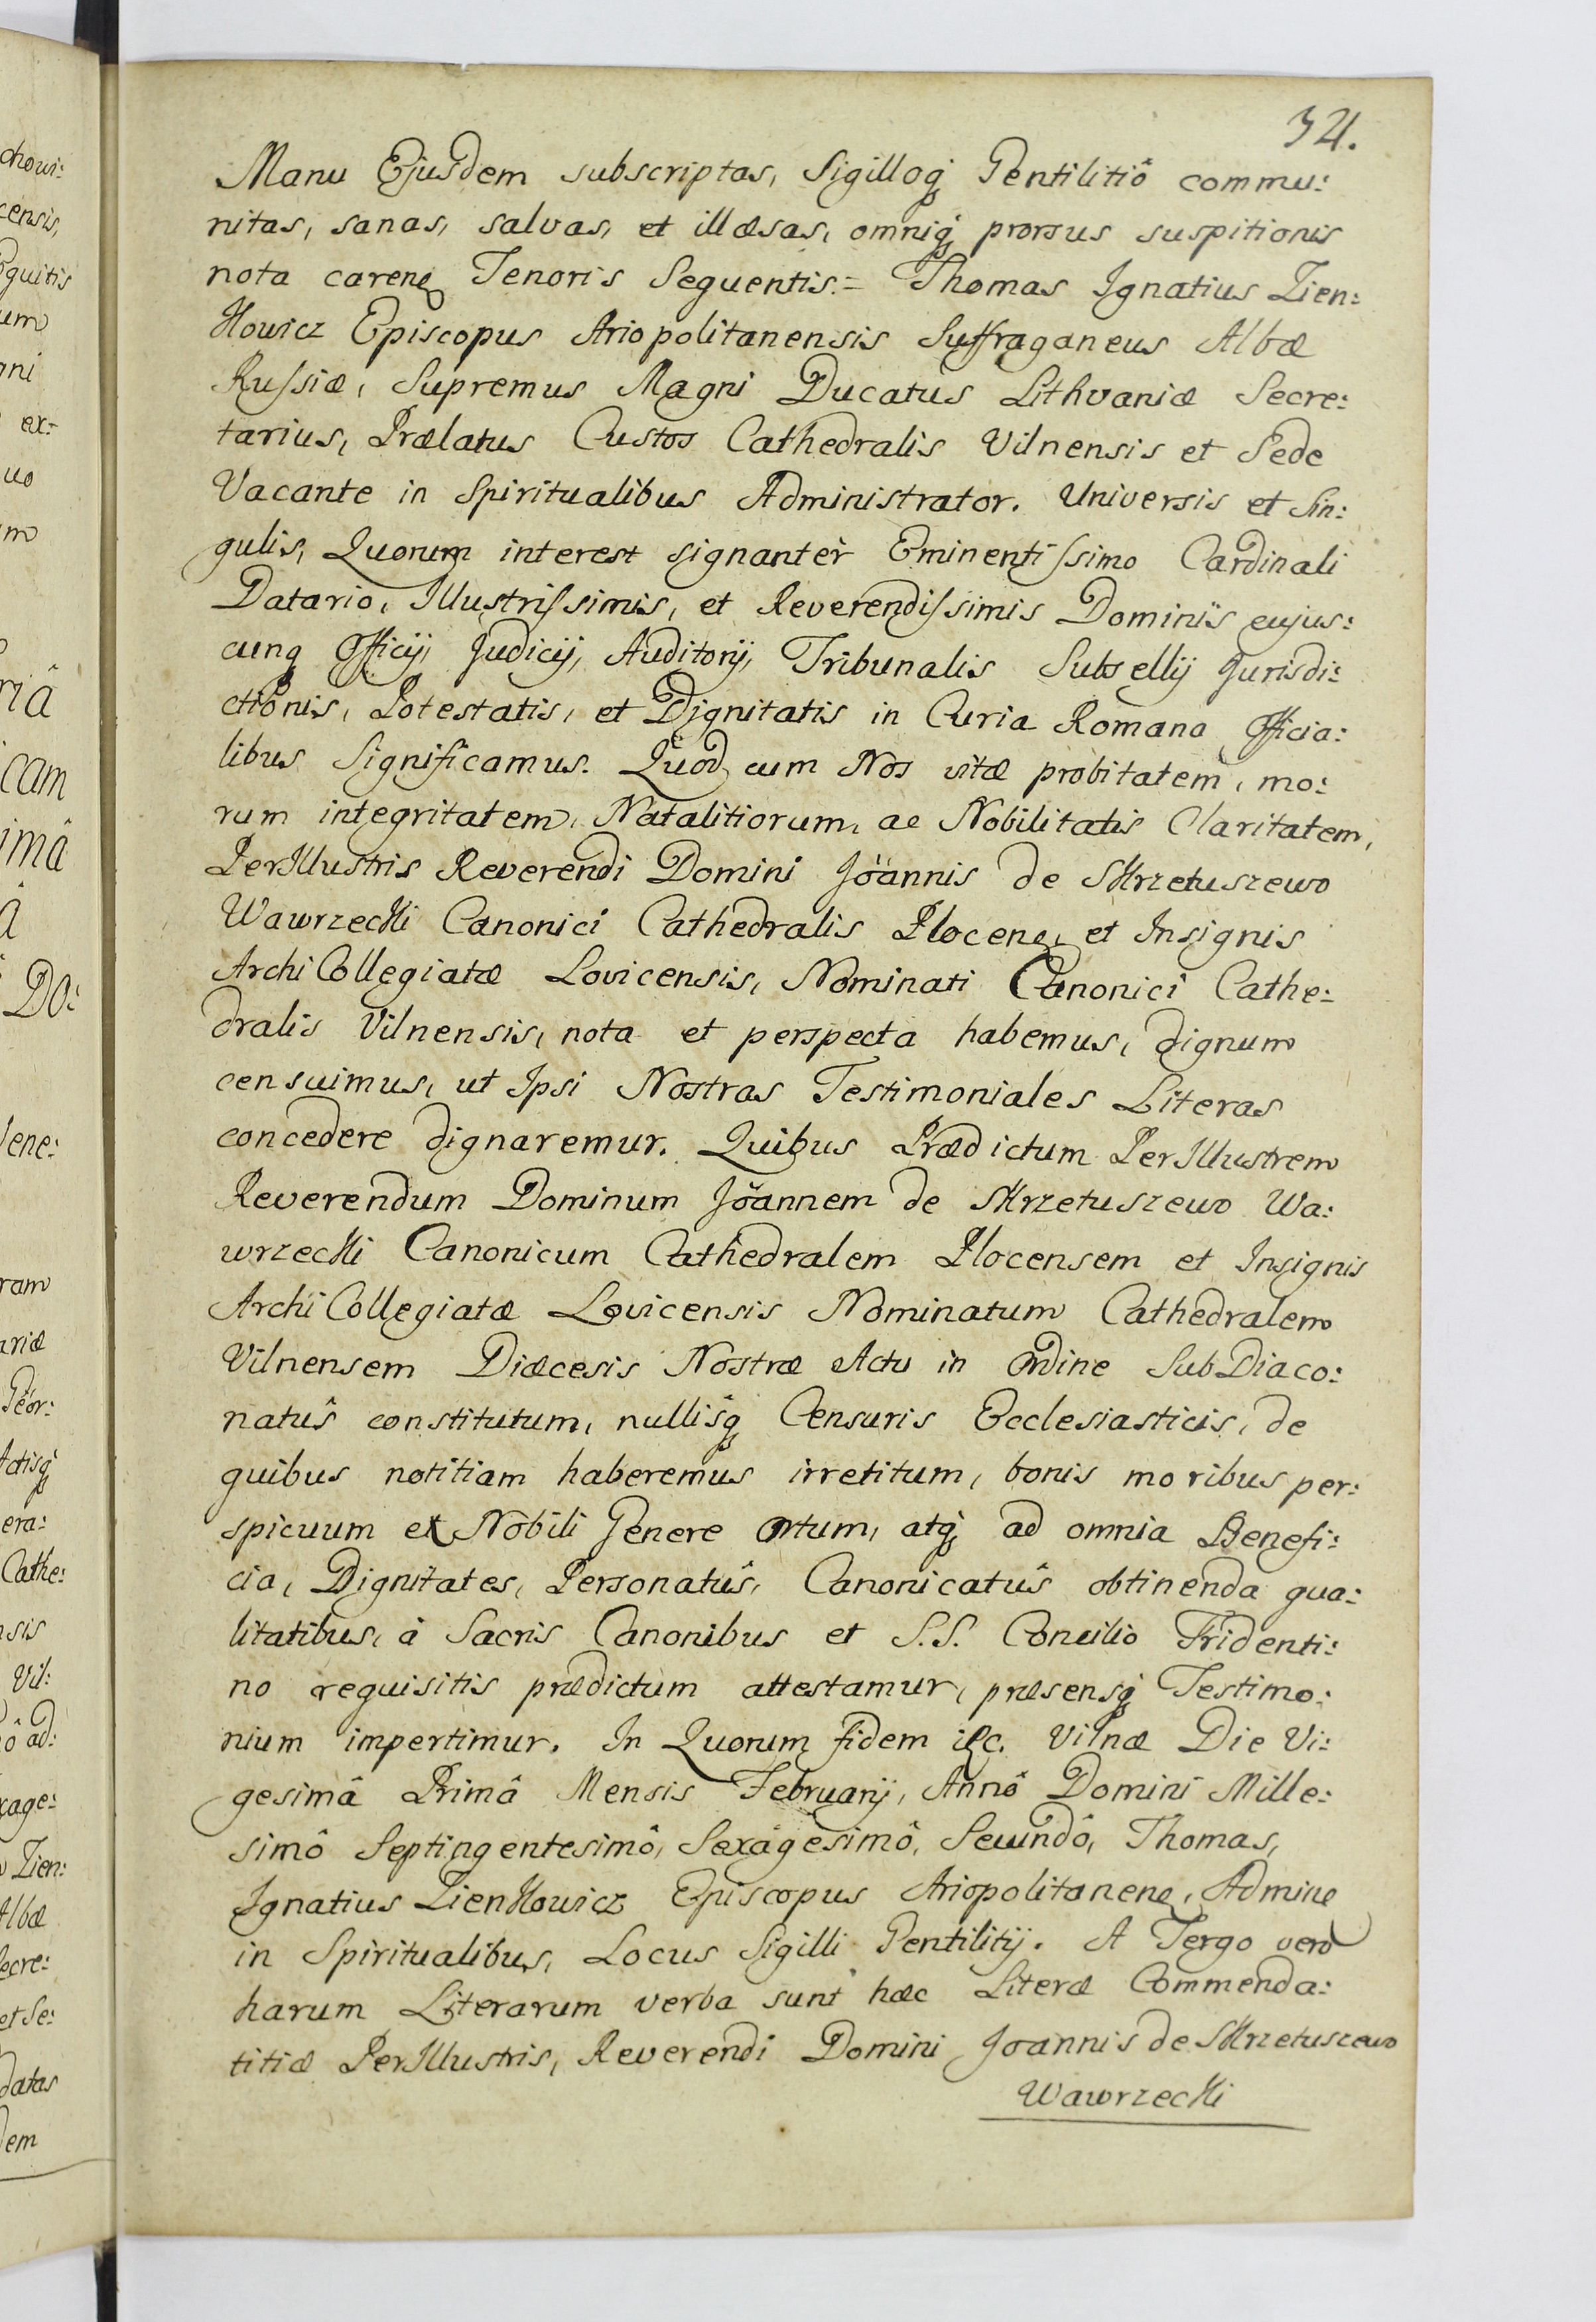 321.
Manu Ejusdem subscriptas, Sigilloq́ Gentilitiô commu:
nitas, sanas, salvas, et illæsas, omniq́ prorsus suspitionis
nota careñ Tenoris Sequentis = Thomas Ignatius Zien:
Kowicz Episcopus Ariopolitanensis Suffraganeus Albæ
Russiæ, Supremus Magni Ducatus Lithvaniæ Secre:
tarius, Prælatus Custos Cathedralis Vilnensis et Sede
Vacante in Spiritualibus Administrator. Universis et Sin:
gulis, Quorum interest signantèr Eminentissimo Cardinali
Datario, Illustrissimis, et Reverendissimis Dominis cujus:
cunq Officij, Judicij, Auditorij, Tribunalis Subsellij Jurisdi:
ctionis, Potestatis, et Dignitatis in Curia Romana Officia:
libus Significamus. Quod cum Nos vitæ probitatem, mo:
rum integritatem, Natalitiorum, ac Nobilitatis Claritatem,
PerIllustris Reverendi Domini Joannis de SKrzetuszewo
WawrzecKi Canonici Cathedralis Ploceñ, et Insignis
ArchiCollegiatæ Lovicensis, Nominati Canonici Cathe:
dralis Vilnensis, nota et perspecta habemus, dignum
censuimus, ut Ipsi Nostras Testimoniales Literas
concedere dignaremur. Quibus Prædictum PerIllustrem
Reverendum Dominum Joannem de SKrzetuszewo Wa:
wrzecKi Canonicum Cathedralem Plocensem et Insignis
ArchiCollegiatæ Lovicensis Nominatum Cathedralem
Vilnensem Diæcesis Nostræ Actu in Ordine SubDiaco:
natûs constitutum, nullisq́ Censuris Ecclesiasticis, de
quibus notitiam haberemus irretitum, bonis moribus per:
spicuum et Nobili Genere Ortum, atq́ ad omnia Benefi:
cia, Dignitates, Personatûs, Canonicatûs obtinenda qua:
litatibus, à Sacris Canonibus et S.S. Concilio Tridenti:
no requisitis prædictum attestamur, præsensq́ Testimo:
nium impertimur. In Quorum fidem etc. Vilnæ Die Vi:
gesimâ Primâ Mensis Februarij, Annô Domini Mille:
simô Septingentesimô, Sexagesimô, Secundô, Thomas,
Ignatius ZienKowicz Episcopus Ariopolitaneñ, Admine
in Spiritualibus, Locus Sigilli Gentilitij. A Tergo verò
harum Literarum verba sunt hæc Literæ Commenda:
titiæ PerIllustris, Reverendi Domini Joannis de SKrzetuszewo
WawrzecKi